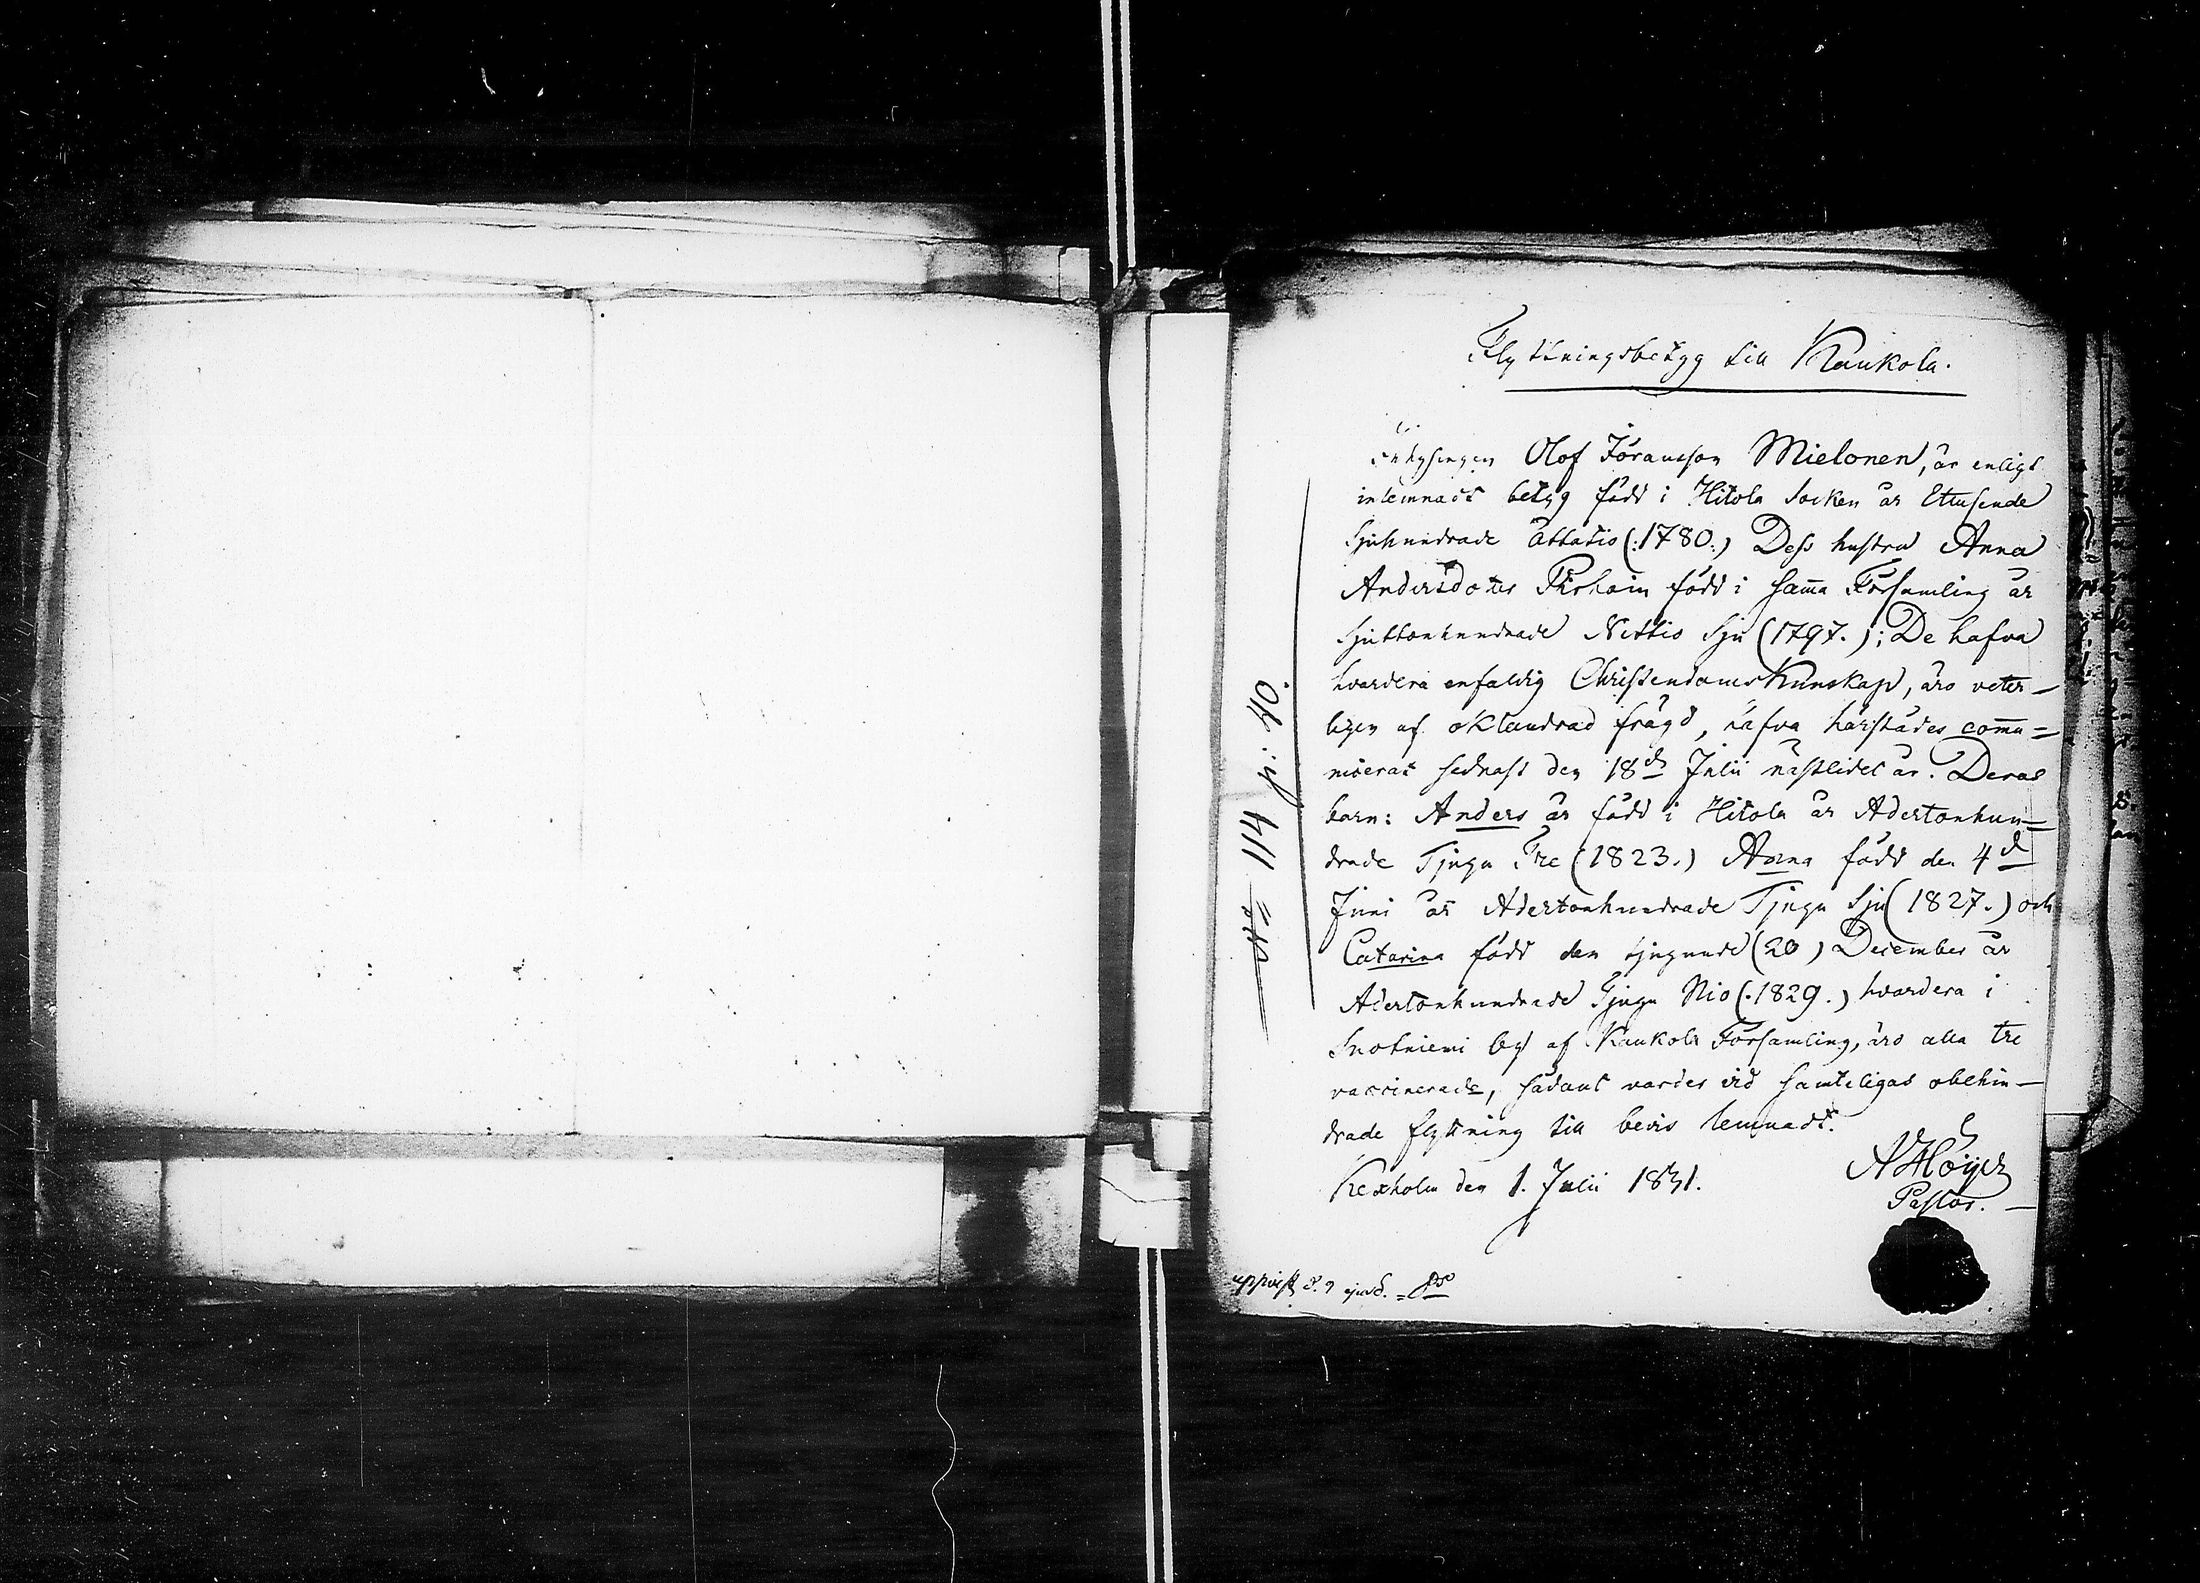 Flyttningsbetyg till Kaukola.
Inhysingen Olof Jöransson Mielonen, är enligt
inlemnadt betyg född i Hitola Socken år Ettusende
Sjuhundrade Åttatio (:1780:) Dess hustru Anna
Andersdotter född i samma Församling år
Sjuttonhundrade Nittio Sju (1797.); De hafva
hvardera enfaldig Christendoms Kunskap, äro veter-
ligen af oklandrad frägd, hafva härstädes commu=
nicerat sednast den 18de Julii nästlidet år. Deras
barn: Anders är född i Hitola år Adertonhun=
drade Tjugu Tre (1823.) Anna född den 4de
Juni år Adertonhundrade Tjugu Sju (1827.) och
Catarina född den tjugunde (20) December år
Adertonhundrade Tjugu Nio (.1829.) hvardera i
Suotniemi by af Kaukola Församling, äro alla tre
vaccinerade, sådant varder vid samteligas obehin-
drade flyttning till bevis lemnadt.
Kexholm den 1. Julii 1831.
A Höijer
Pastor.
N:o 114 p. 40.
uppvist d. 9 ejusd.